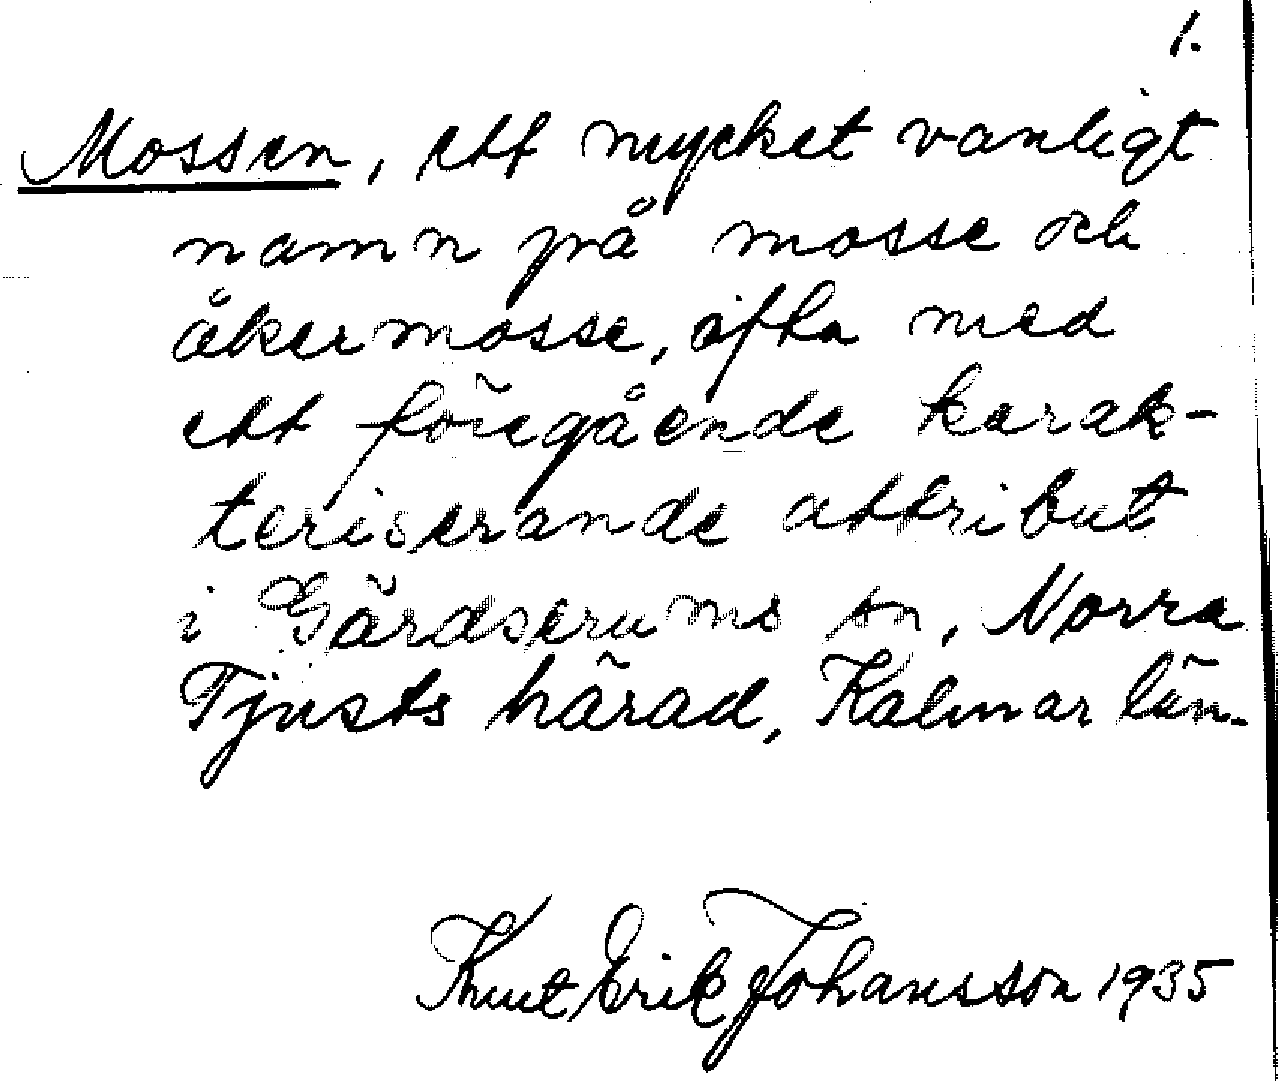 1.
Mossen, ett mycket vanligt
namn på mosse och
åkermosse, ofta med
ett föregående karak-
teriserande attribut
i Gärdserums sn, Norra
Tjusts härad, Kalmar län.
Knut Erik Johansson 1935